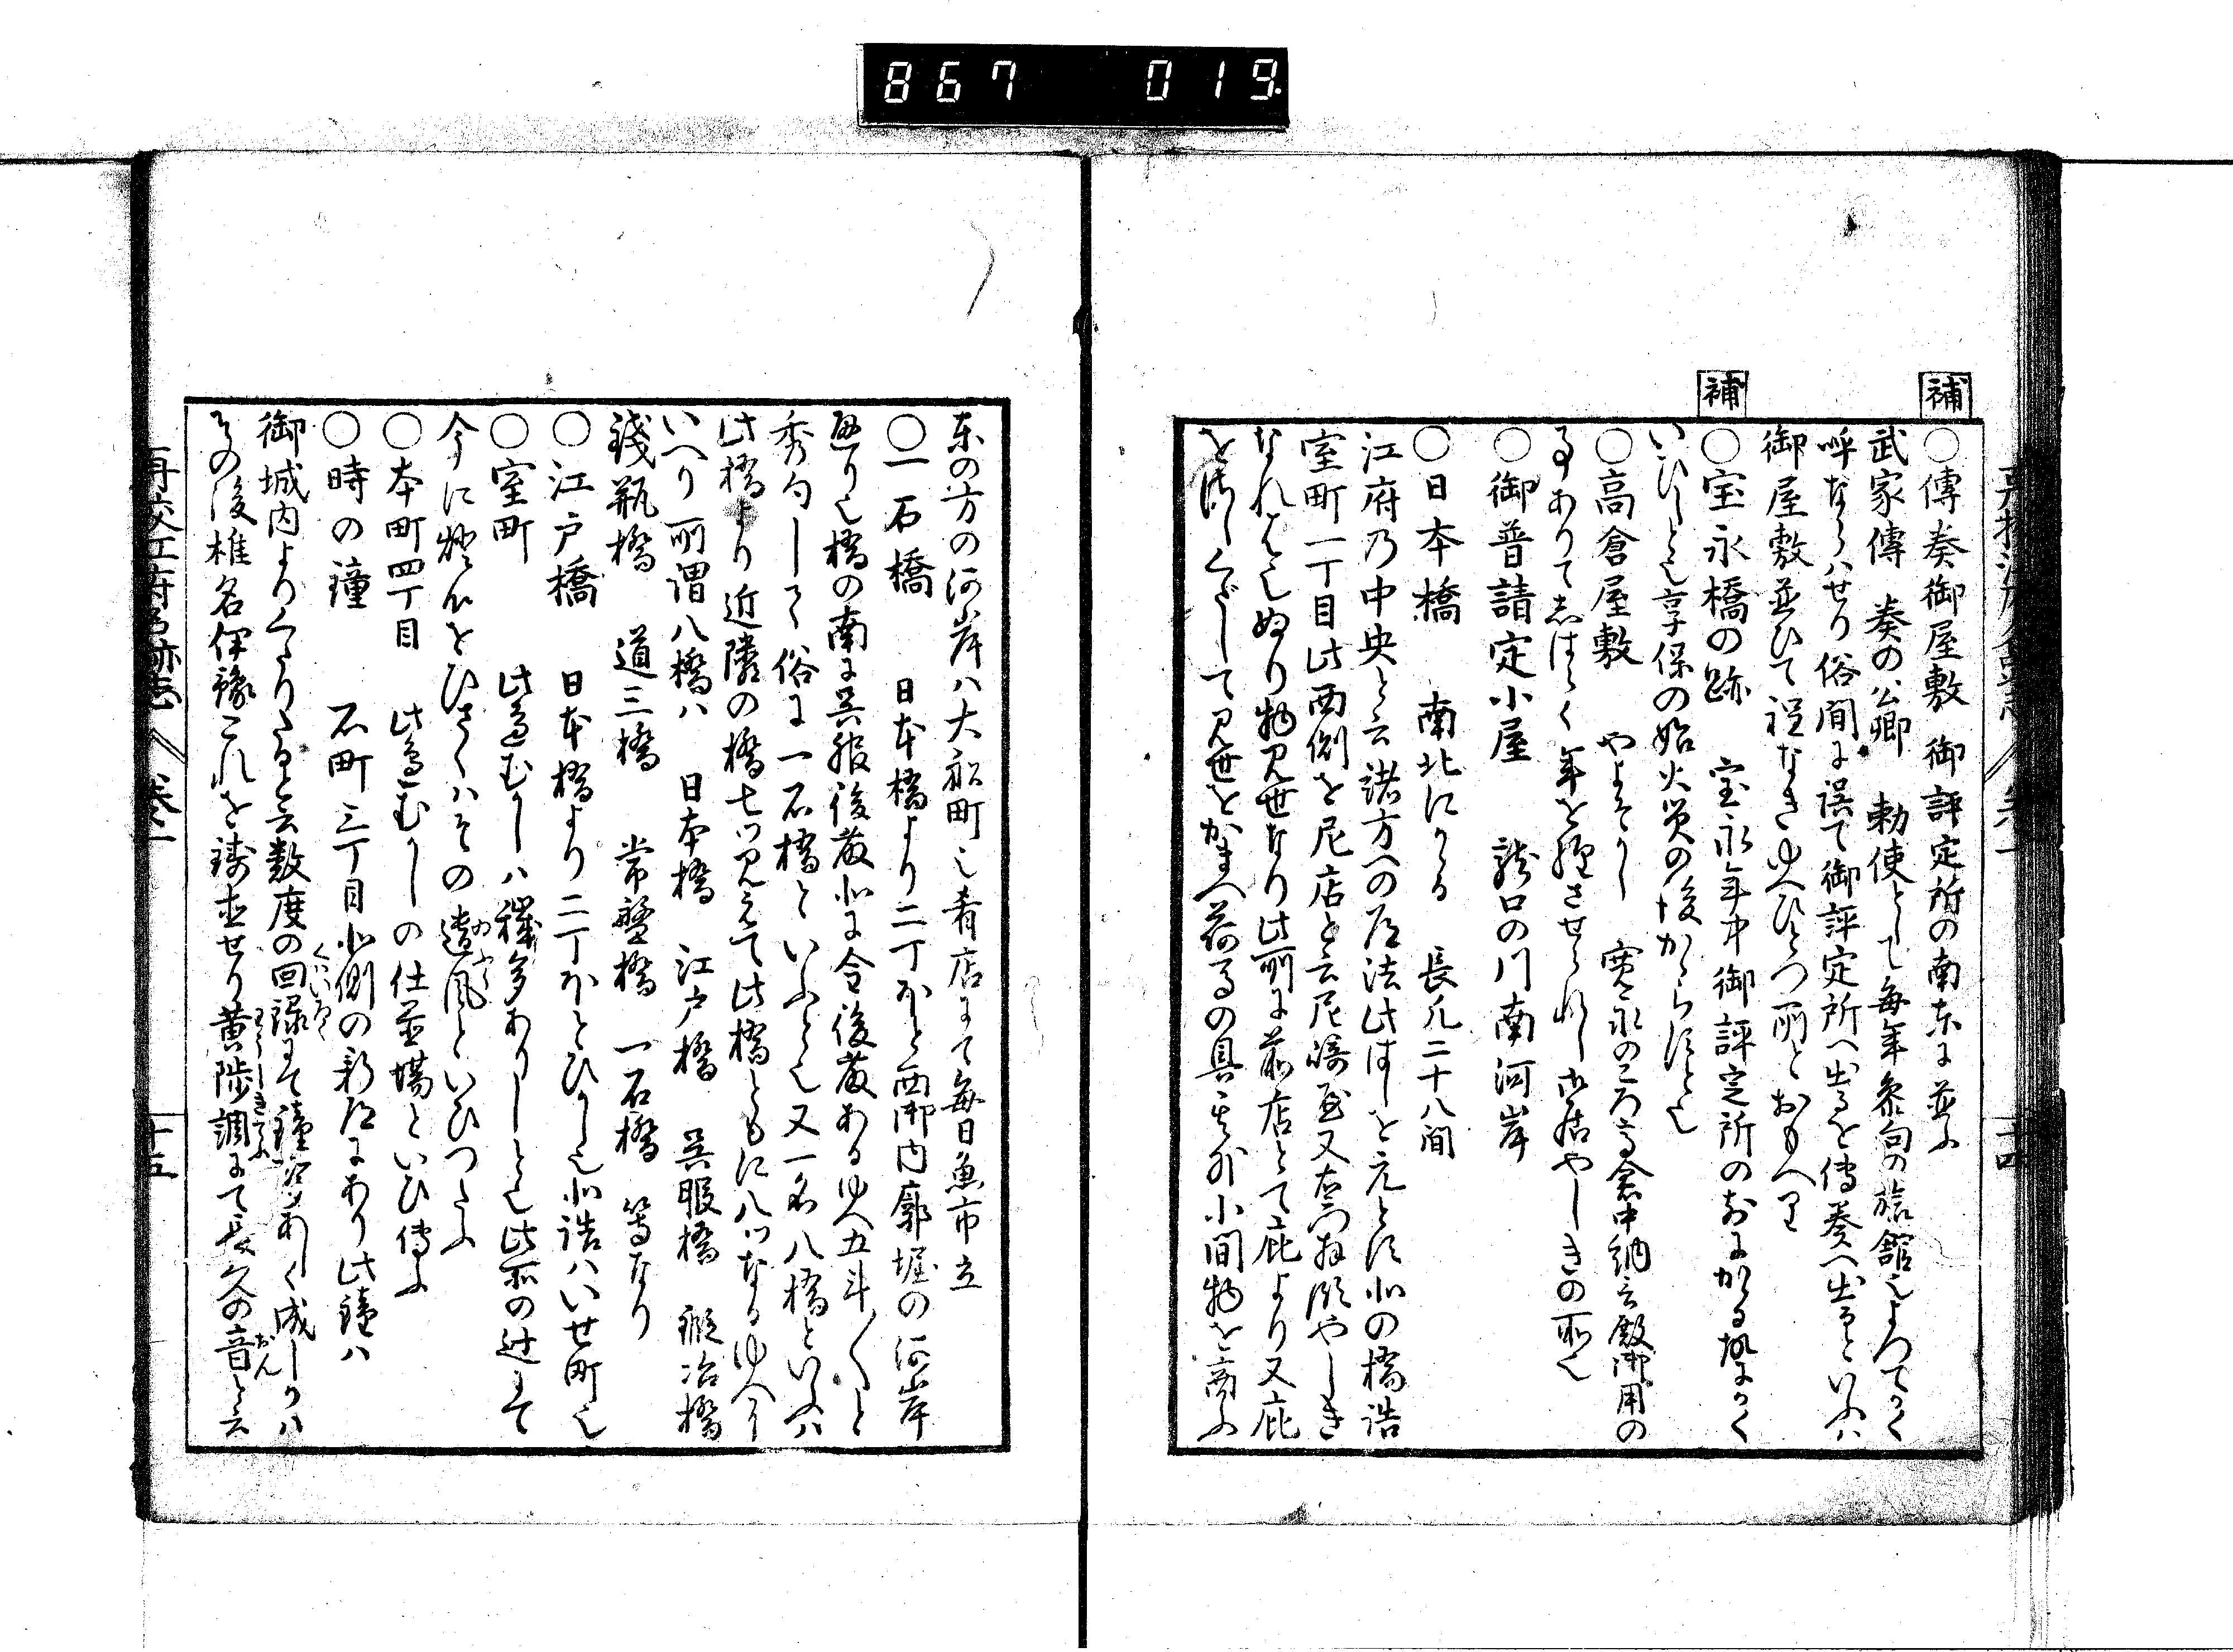 867 019
補
○傳奏御屋敷 御評定所の南東に並ふ
武家傳 奏の公卿 勅使として毎年参向の旅館也よつてかく
呼ならハせり俗間に誤て御評定所へ出るを傳奏へ出るといふハ
御屋敷並ひて程なきゆへひとつ所とおもへり
補
○宝永橋の跡 宝永年中御評定所の前にかゝる故にかく
いひしとそ享保の始火災の後かゝらすとそ
○高倉屋敷 やよすかし 寛永のころ高倉中納言殿御用の
事ありてしはらく年を経させられし御居やしきの所也
○御普請定小屋 龍口の川南河岸
○日本橋 南北にかゝる 長凡二十八間
江府乃中央と云諸方への道法此はしを元とす北の橋詰
室町一丁目此西側を尼店と云尼崎屋又右衛門拝領やしき
なれはなりぬり物見世なり此所に前店とて庇より又庇
をおろしくだして見世をかまへ荷馬の具其外小間物を商ふ
東の方の河岸ハ大船町也肴店にて毎日魚市立
○一石橋 日本橋より二丁ほと西御内廓堀の河岸
通り也橋の南に呉服後藤北に金後藤あるゆへ五斗〱と
秀句して俗に一石橋といふとそ又一名八橋といふハ
此橋より近隣の橋七ツ見えて此橋ともに八ツなるゆへに
いへり所謂八橋ハ 日本橋 江戸橋 呉服橋 鍛冶橋
銭瓶橋 道三橋 常盤橋 一石橋 等なり
○江戸橋 日本橋より二丁ほとひかし也北詰ハいせ町也
○室町 此邊むかしハ穢多ありしとそ此所の辻にて
今に燈心をひさくハその遺風といひつたふ
○本町四丁目 此邊むかしの仕置場といひ傳ふ
○時の鐘 石町三丁目北側の新道にあり此鐘ハ
御城内よりくたりたると云数度の回禄にて鐘の音あしく成しかハ
その後椎名伊豫これを鋳直せり黄渉調にて長久の音と云
再校江府名跡志 巻一 十五